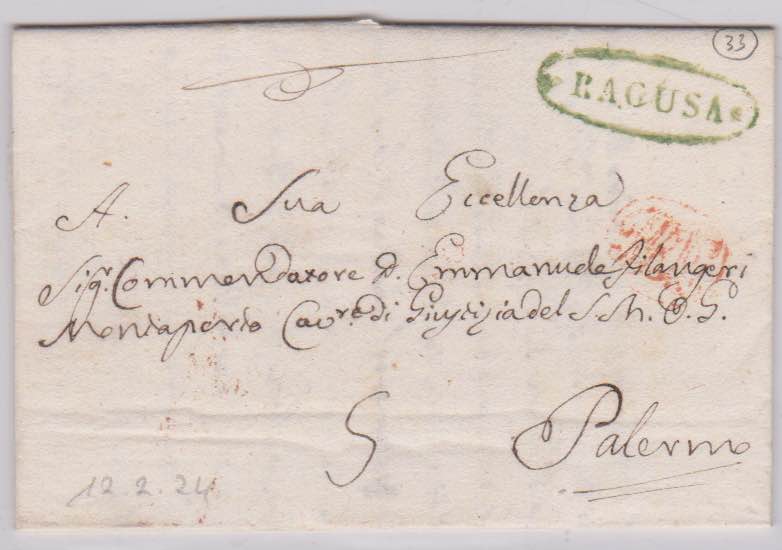 33
RAGUSA
A. Sua Eccellenza
Sigr. Commendatore D. Emmanuele Filangeri
Montaperto Cavre. di Giustizia del S. M. O. G.
5 Palermo
12.2.24